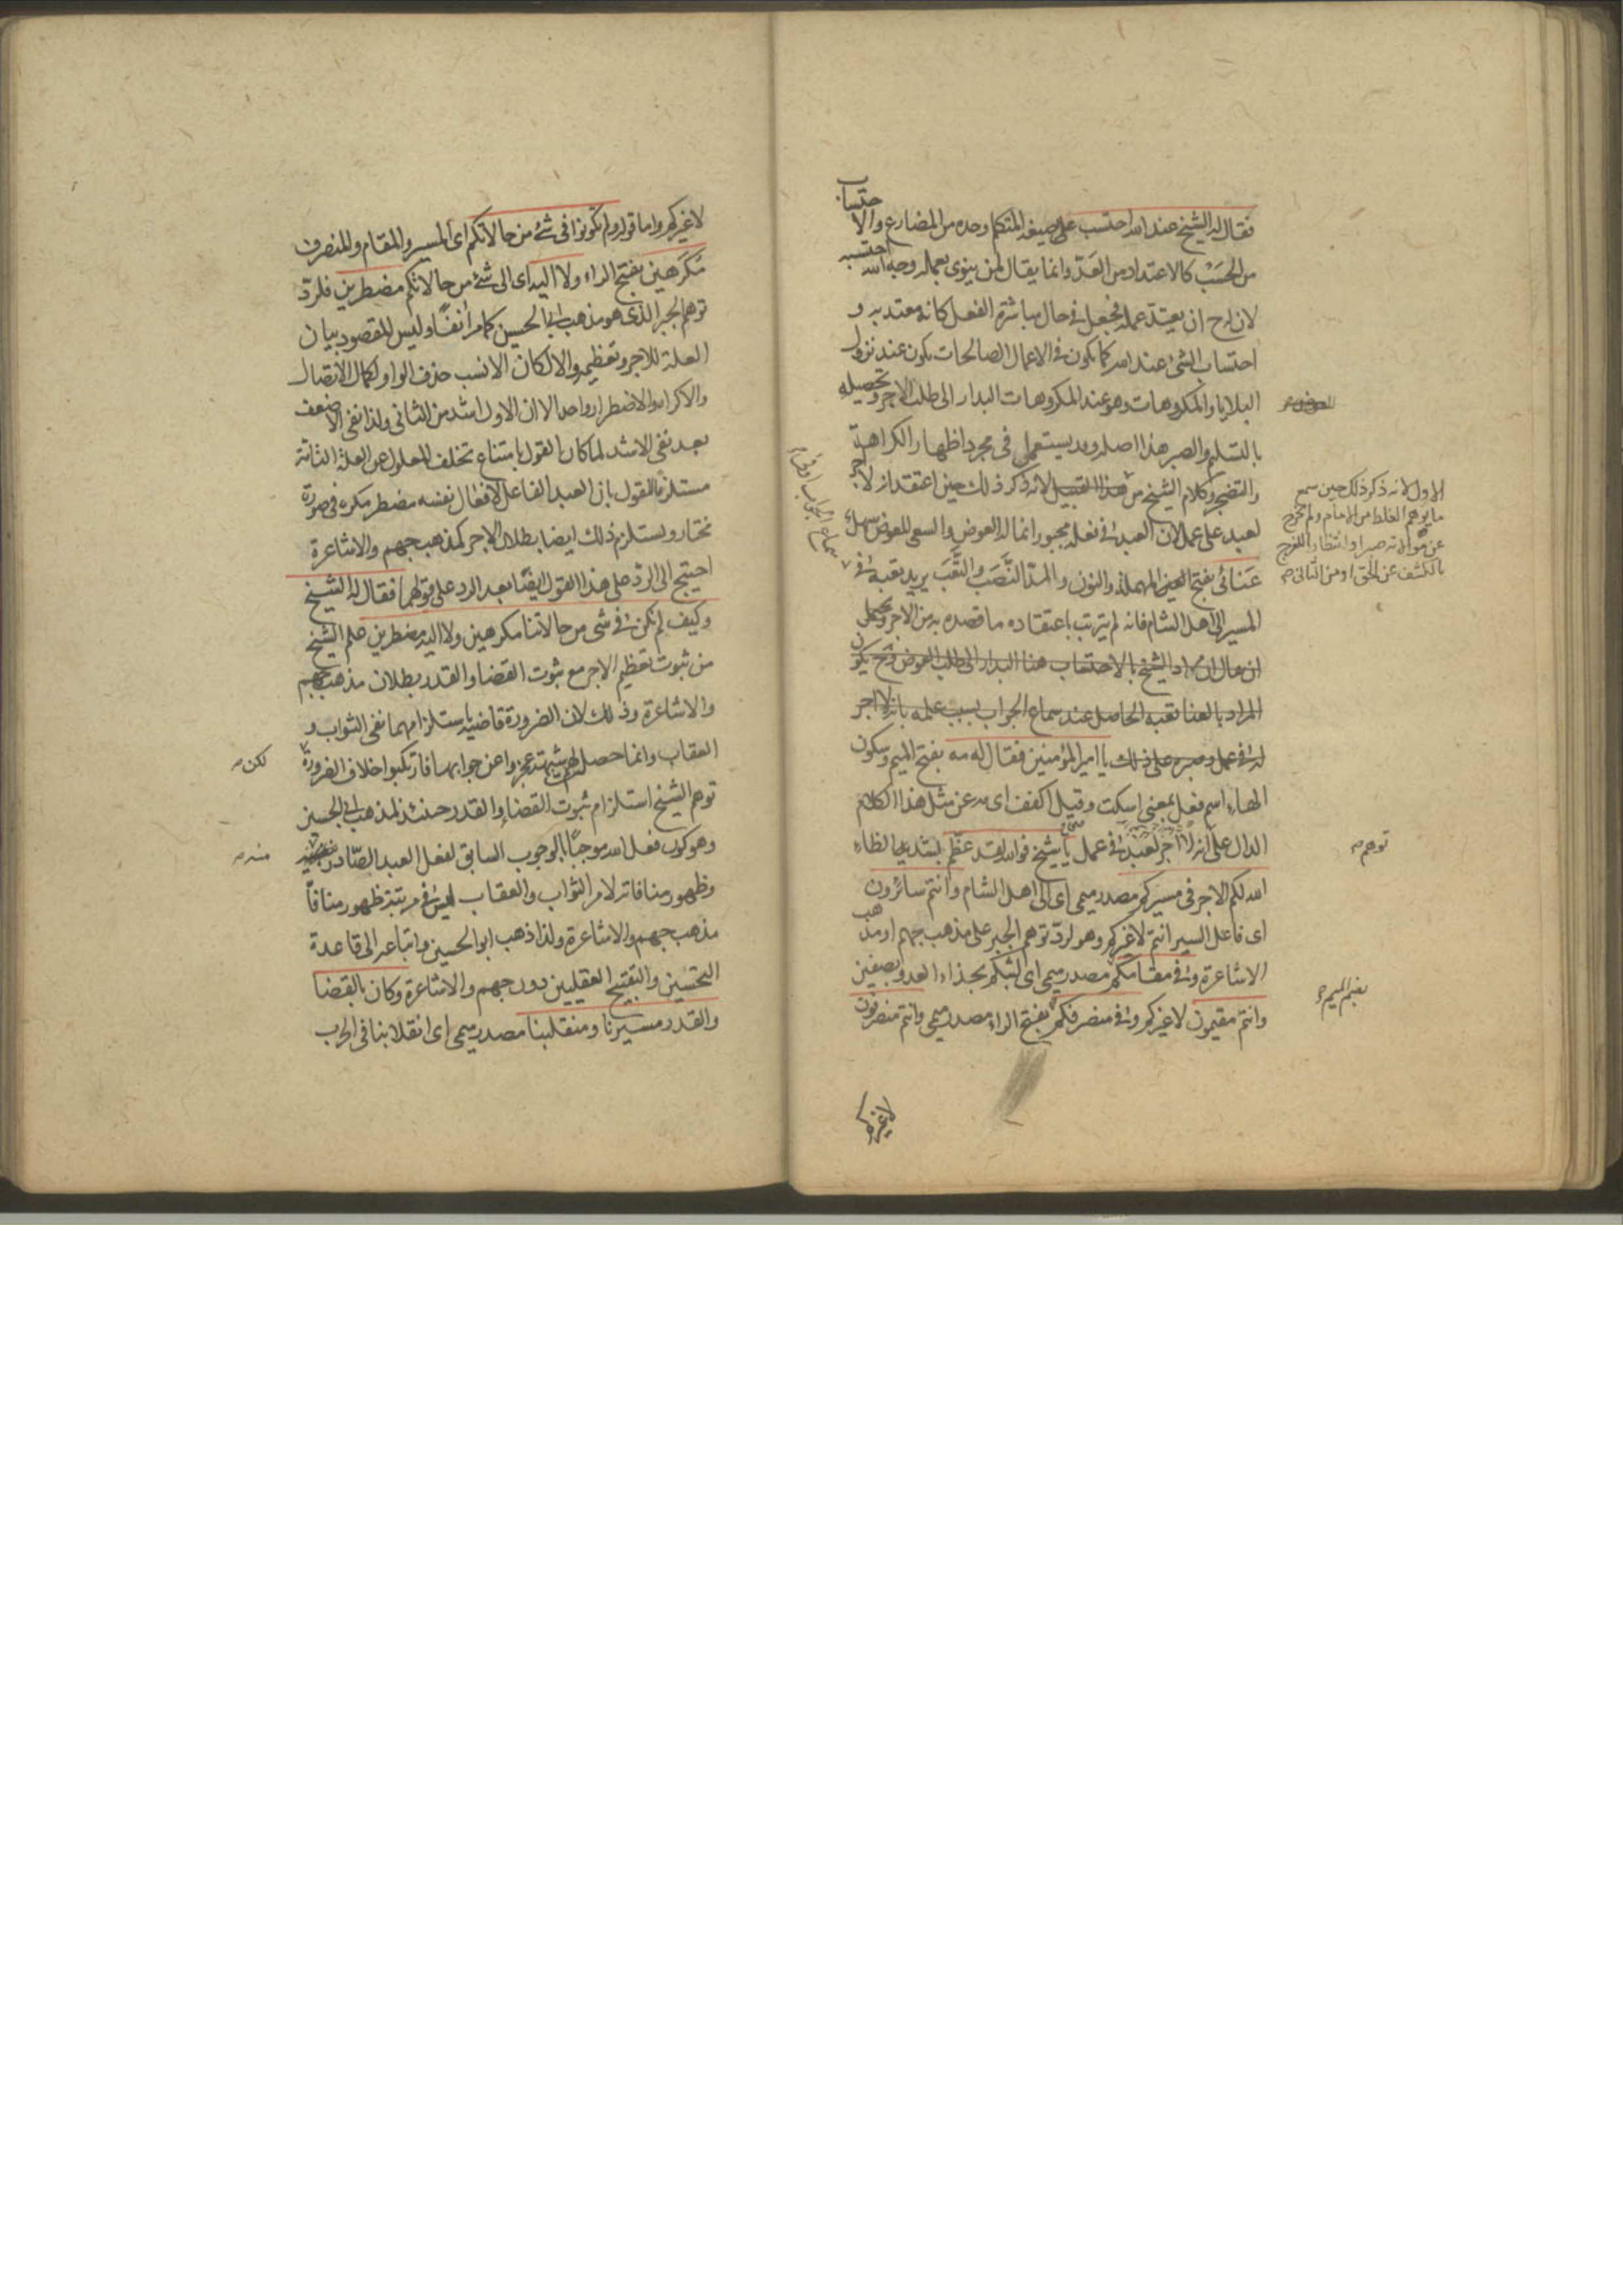 فقال له الشيخ عند الله احتسب على صيغة المتكلم وحده من المضارع والاحتساب
من الحَسَب كالاعتداد من العَدّ وانما يقال لمن ينوى بعمله وجه الله احتسبه
لان له ح ان يعتدّ عمله فجعل في حال مباشرة الفعل كانه معتد به و
احتساب الشئ عند الله كما يكون في الاعمال الصالحات يكون عند نزول
البلايا والمكروهات وهو عند المكروهات البدار الى طلب الاجر وتحصيله
بالتسليم والصبر هذا اصله وقد يستعمل في مجرد اظهار الكراهة
والتضجر وكلام الشيخ من هذا القبيل لانه ذكر ذلك حين اعتقد انه لا اجر
لعبد على عمل لان العبد في فعله مجبور انما له العوض والسعى للعوض سهل
عَنائى بفتح العين المهملة والنون والمدّ النَّصَب والتَّعَب يريد تعبه في
المسير الى اهل الشام فانه لم يترتب باعتقاده ما قصده به من الاجر ويحتمل
ان يقال ان مراد الشيخ بالاحتساب هنا البدار الى طلب العوض فح يكون
المراد بالعنا تعبه الحاصل عند سماع الجواب بسبب علمه بانه لا اجر
له في عمل وصبره على ذلك يا امير المؤمنين فقال له مه بفتح الميم وسكون
الهاء اسم فعل بمعنى اسكت وقيل اكفف اى مه عن مثل هذا الكلام
الدال على انه لا اجر لعبد في عمل يا شيخ فوالله لقد عظّم بتشديد الظاء
الله لكم الاجر في مسيركم مصدر ميمى اى الى اهل الشام وانتم سائرون
اى فاعل السير انتم لا غيركم وهو لردّ توهم الجبر على مذهب جهم او مذهب
الاشاعرة وفي مقامكم مصدر ميمى اى لبثكم بحذاء العدو بصفين
وانتم مقيمون لا غيركم وفي منصرفكم بفتح الراء مصدر ميمى وانتم منصرفون
لا غيركم
الاول لانه ذكر ذلك حين سمع
ما يوهم الغلط من الامام ولم يخرج
عن موالاته صبرا وانتظارا للفرج
بالكشف عن الحق او من الثانى صح
توهم صح
بضم الميم
لا غيركم واما قوله ولم تكونوا في شئ من حالاتكم اى المسير والمقام والمنصرف
مكرَهين بفتح الراء ولا اليه اى الى شئ من حالاتكم مضطرين فلردّ
توهم الجبر الذى هو مذهب ابي الحسين كما مر آنفًا وليس المقصود بيان
العلة للاجر وتعظيمه والا لكان الانسب حذف الواو لكمال الاتصال
والاكراه والاضطرار واحد الا ان الاول اشد من الثانى ولذا نفى الاضعف
بعد نفى الاشد لما كان القول بامتناع تخلف المعلول عن العلة التامة
مستلزما للقول بان العبد الفاعل لافعال نفسه مضطر مكره في صورة
مختار ويستلزم ذلك ايضا بطلان الاجر كمذهب جهم والاشاعرة
احتيج الى الردّ على هذا القول ايضًا بعد الرد على قولهما فقال له الشيخ
وكيف لم نكن في شى من حالاتنا مكرهين ولا اليه مضطرين علم الشيخ
من ثبوت تعظيم الاجر مع ثبوت القضا والقدر بطلان مذهب جهم
والاشاعرة وذلك لان الضرورة قاضية باستلزامهما نفى الثواب و
العقاب وانما حصل لهم شبهة عجزوا عن جوابها فارتكبوا خلاف الضرورة
توهم الشيخ استلزام ثبوت القضاء والقدر حينئذ لمذهب ابي الحسين
وهو كون فعل الله موجبًا بالوجوب السابق لفعل العبد الصّادر
وظهور منافاته لامر الثواب والعقاب ليس في مرتبة ظهور منافاة
مذهب جهم والاشاعرة ولذا ذهب ابو الحسين واتباعه الى قاعدة
التحسين والتقبيح العقليين دون جهم والاشاعرة وكان بالقضا
والقدر مسيرنا ومنقلبنا مصدر ميمى اى انقلابنا في الحرب
لكن صح
منه صح